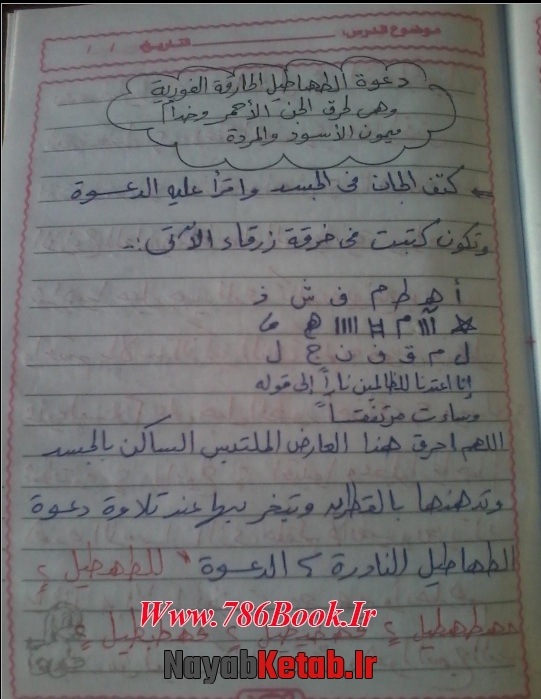 موضوع الدرس: التاريخ / /
دعوة الطهاطيل الحارقة الفورية
وهى لحرق الجن الأحمر وخدام
ميمون الأسود والمردة
كتف الجان فى الجسد واقرأ عليه الدعوة
وتكون كتبت فى خرقة زرقاء الآتى :-
أ هـ ط م ف ش ذ
ل م ق و ن ج ل
إنا اعتدنا للظالمين ناراً إلى قوله
وساءت مرتفقاً
اللهم احرق هذا العارض الملتبس الساكن بالجسد
وتدهنها بالقطران وتبخر بيها عند تلاوة دعوة
الطهاطيل النادرة الدعوة " للطهطيل
Www.786Book.Ir
NayabKetab.Ir